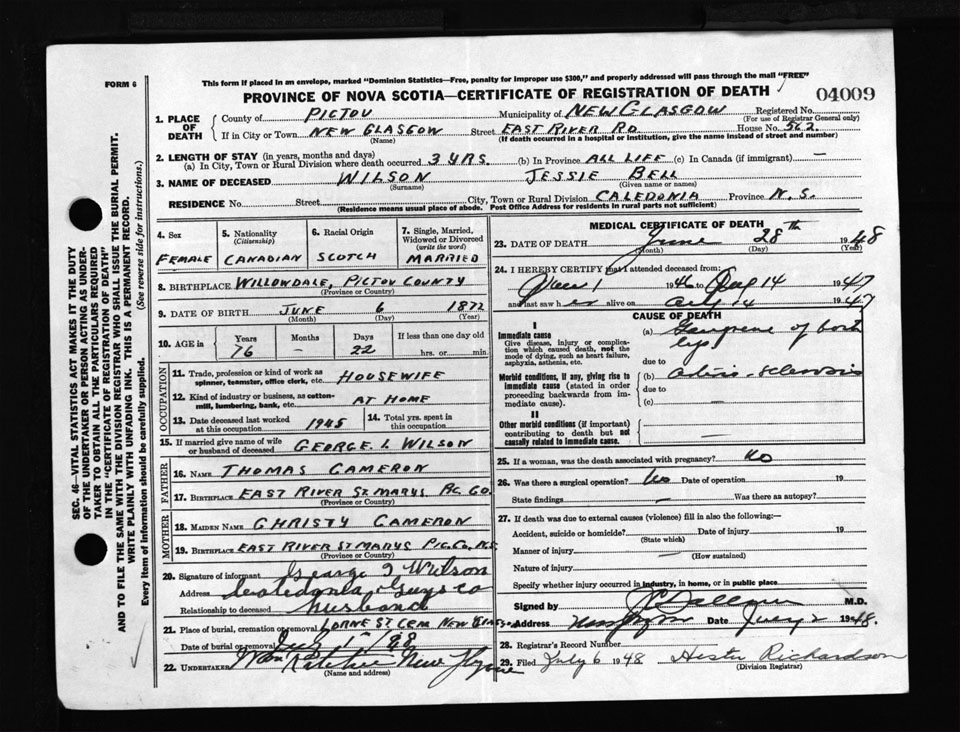 FORM 6
This form if placed in an envelope, marked "Dominion Statistics—Free, penalty for improper use $300," and properly addressed will pass through the mail "FREE"
PROVINCE OF NOVA SCOTIA—CERTIFICATE OF REGISTRATION OF DEATH
04009
SEC. 46—VITAL STATISTICS ACT MAKES IT THE DUTY
OF THE UNDERTAKER OR PERSON ACTING AS UNDER-
TAKER TO OBTAIN ALL THE PARTICULARS REQUIRED
IN THE "CERTIFICATE OF REGISTRATION OF DEATH"
AND TO FILE THE SAME WITH THE DIVISION REGISTRAR WHO SHALL ISSUE THE BURIAL PERMIT.
WRITE PLAINLY WITH UNFADING INK. THIS IS A PERMANENT RECORD.
Every item of Information should be carefully supplied. (See reverse side for instructions.)
1. PLACE OF DEATH
County of PICTOU Municipality of NEW GLASGOW Registered No.
(For use of Registrar General only)
If in City or Town NEW GLASGOW Street EAST RIVER RD House No. 562
(Name) (If death occurred in a hospital or institution, give the name instead of street and number)
2. LENGTH OF STAY (in years, months and days)
(a) In City, Town or Rural Division where death occurred 3 YRS. (b) In Province ALL LIFE (c) In Canada (if immigrant) —
3. NAME OF DECEASED WILSON JESSIE BELL
(Surname) (Given name or names)
RESIDENCE No. Street City, Town or Rural Division CALEDONIA Province N.S.
(Residence means usual place of abode. Post Office Address for residents in rural parts not sufficient)
4. Sex
FEMALE
5. Nationality
(Citizenship)
CANADIAN
6. Racial Origin
SCOTCH
7. Single, Married,
Widowed or Divorced
(write the word)
MARRIED
8. BIRTHPLACE WILLOWDALE, PICTOU COUNTY
(Province or Country)
9. DATE OF BIRTH JUNE 6 1872
(Month) (Day) (Year)
10. AGE in Years Months Days If less than one day old
76 — 22 hrs. or min.
OCCUPATION
11. Trade, profession or kind of work as
spinner, teamster, office clerk, etc. HOUSEWIFE
12. Kind of industry or business, as cotton-
mill, lumbering, bank, etc. AT HOME
13. Date deceased last worked
at this occupation 1945
14. Total yrs. spent in
this occupation
15. If married give name of wife
or husband of deceased GEORGE. L WILSON
FATHER
16. NAME THOMAS CAMERON
17. BIRTHPLACE EAST RIVER ST. MARYS PIC. CO.
(Province or Country)
MOTHER
18. MAIDEN NAME CHRISTY CAMERON
19. BIRTHPLACE EAST RIVER ST MARYS PIC. CO. N.S.
(Province or Country)
20. Signature of informant George I Wilson
Address Caledonia Guys Co
Relationship to deceased husband
21. Place of burial, cremation or removal LORNE ST. CEM NEW GLAS
Date of burial or removal July 1st
22. UNDERTAKER New Glasgow
(Name and address)
MEDICAL CERTIFICATE OF DEATH
23. DATE OF DEATH June 28th 1948
(Month) (Day) (Year)
24. I HEREBY CERTIFY that I attended deceased from:
1 1946 14 1947
and last saw h er alive on 14 1947
CAUSE OF DEATH
I
Immediate cause
Give disease, injury or complica-
tion which caused death, not the
mode of dying, such as heart failure,
asphyxia, asthenia, etc.
(a) Gangrene of both
legs
due to
Morbid conditions, if any, giving rise to
immediate cause (stated in order
proceeding backwards from im-
mediate cause).
(b) Arterio-sclerosis
due to
(c) —
II
Other morbid conditions (if important)
contributing to death but not
causally related to immediate cause.
—
25. If a woman, was the death associated with pregnancy? No
26. Was there a surgical operation? No Date of operation 19
State findings — Was there an autopsy?
27. If death was due to external causes (violence) fill in also the following:—
Accident, suicide or homicide? Date of injury 19
(State which)
Manner of injury —
(How sustained)
Nature of injury
Specify whether injury occurred in industry, in home, or in public place
Signed by M.D.
Address Date July 2 1948.
28. Registrar's Record Number
29. Filed July 6 1948 Hester Richardson
(Division Registrar)